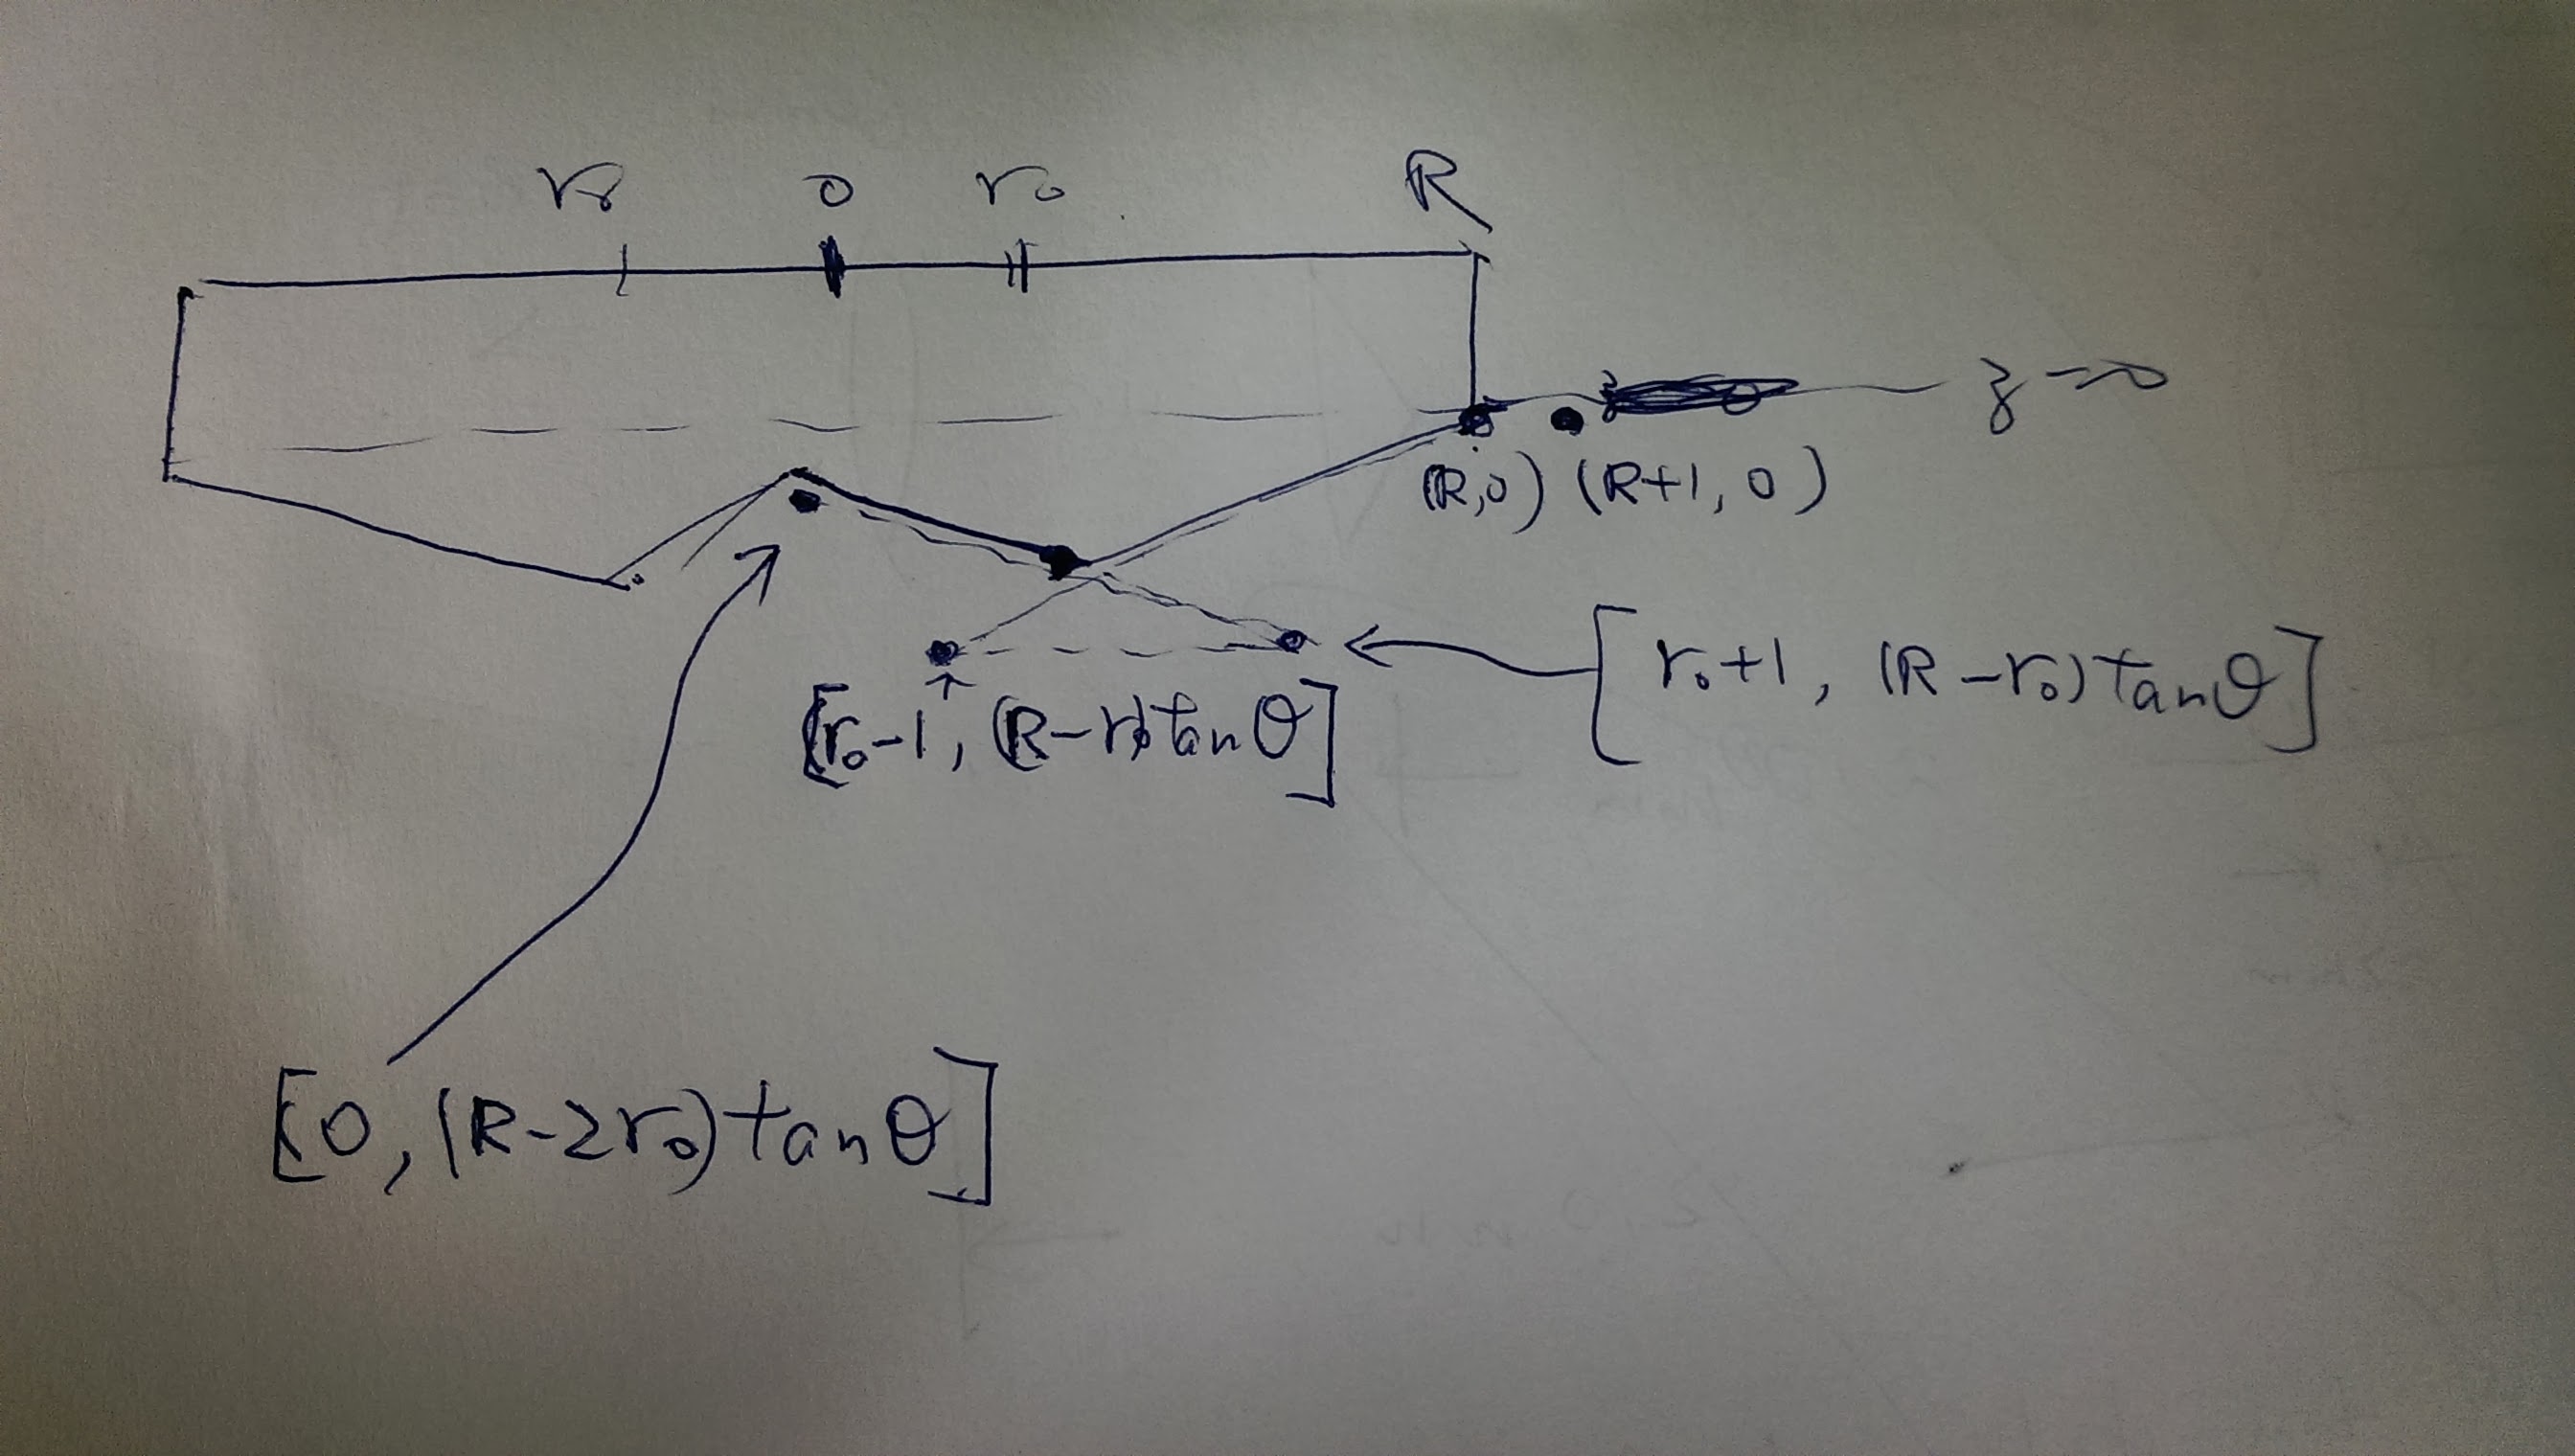 r₀ 0 r₀ R
z=0
(R,0) (R+1, 0)
[r₀+1, (R-r₀)tanθ]
[r₀-1, (R-r₀)tanθ]
[0, (R-2r₀)tanθ]